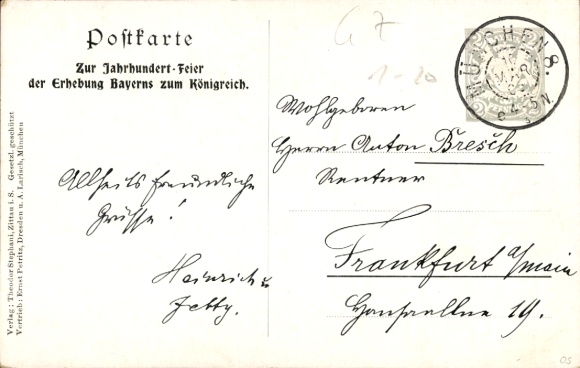 Postkarte
Zur Jahrhundert-Feier
der Erhebung Bayerns zum Königreich.
Verlag: Theodor Stephani, Zittau i. S. Gesetzl. geschützt
Vertrieb: Ernst Potritz, Dresden u. A. Larisch, München
G 7
1-20
MÜNCHEN 8.
4-5 N.
Wohlgeboren
Herrn Anton Bresch
Rentner
Frankfurt a/main
Hansaallee 19.
Allseits freundliche
Grüsse!
Heinrich u
Jetty.
OS